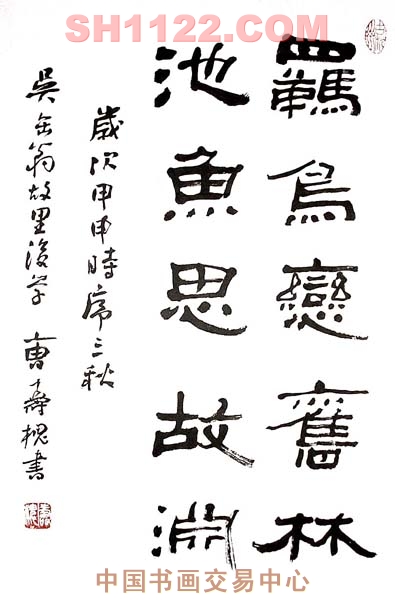 SH1122.COM
羈鳥戀舊林
池魚思故淵
歲次甲申時序三秋
吳缶翁故里後學 曹壽槐書
中国书画交易中心